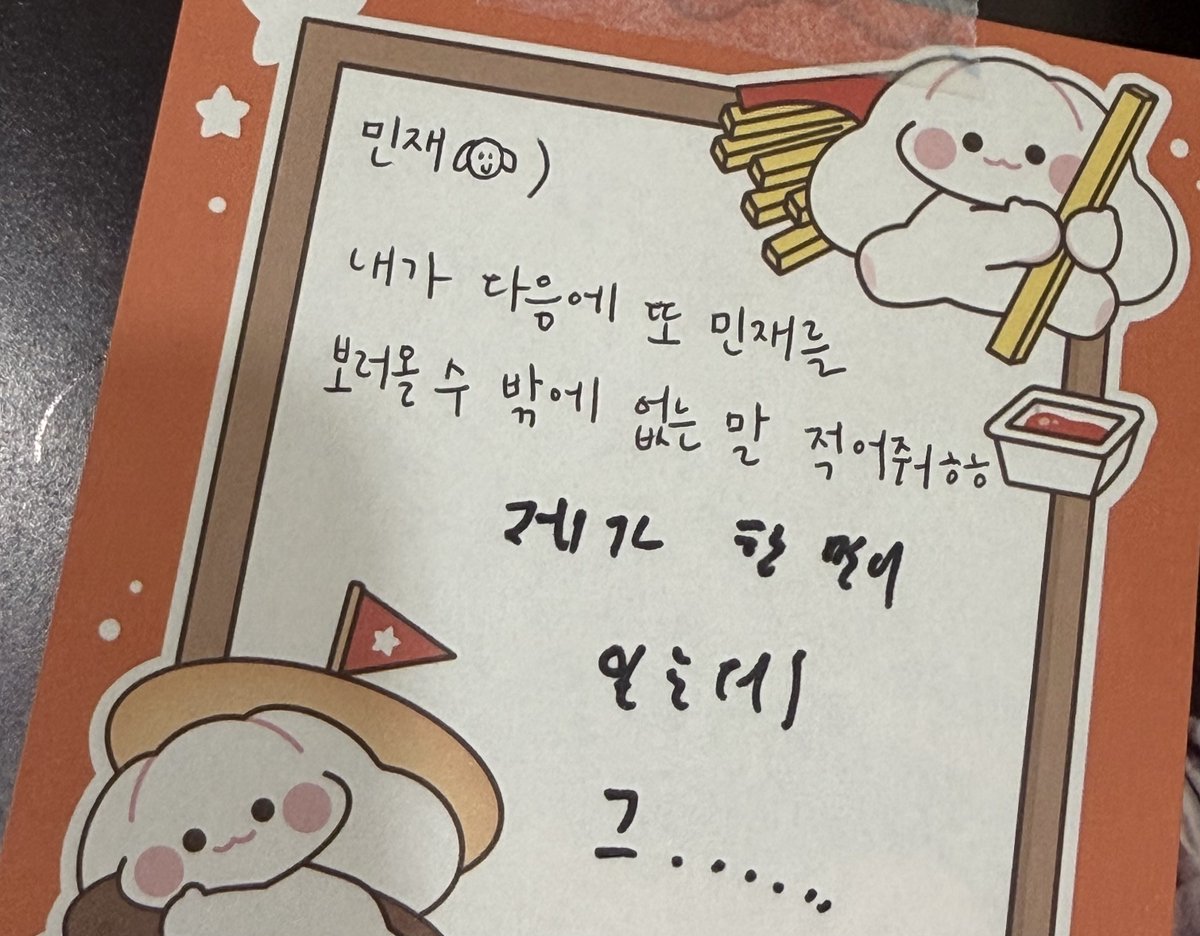 민재 )
내가 다음에 또 민재를
보러올 수 밖에 없는 말 적어줘ㅎㅎ
제가 할 말이
있는데
그......,,